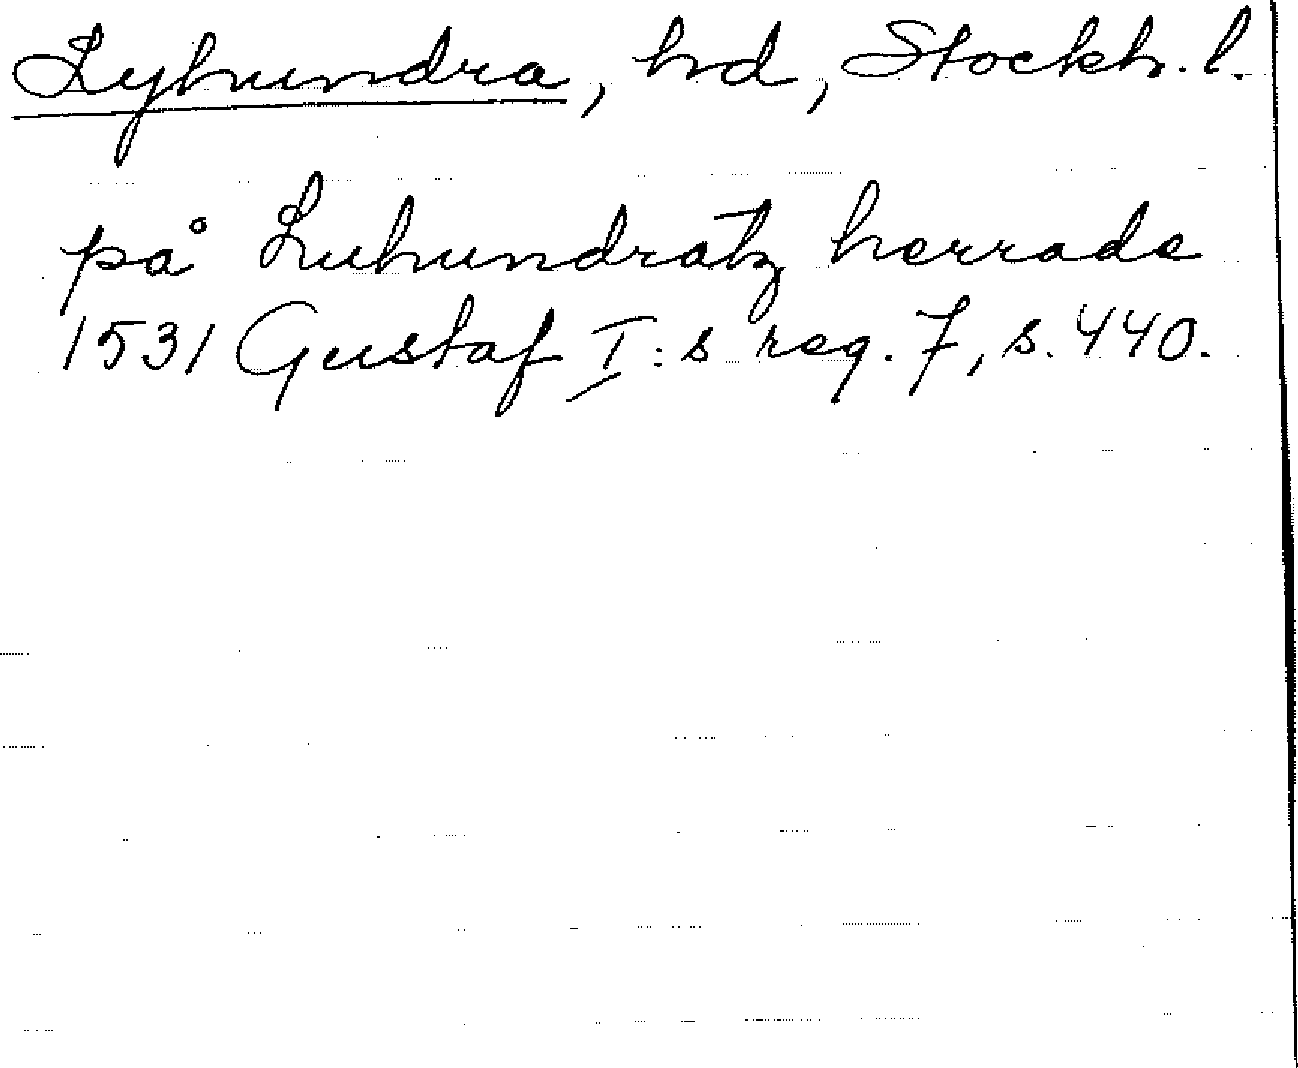 Lyhundra, hd, Stockh. l.
på Luhundratz herrade
1531 Gustaf I:s reg. 7, s. 440.